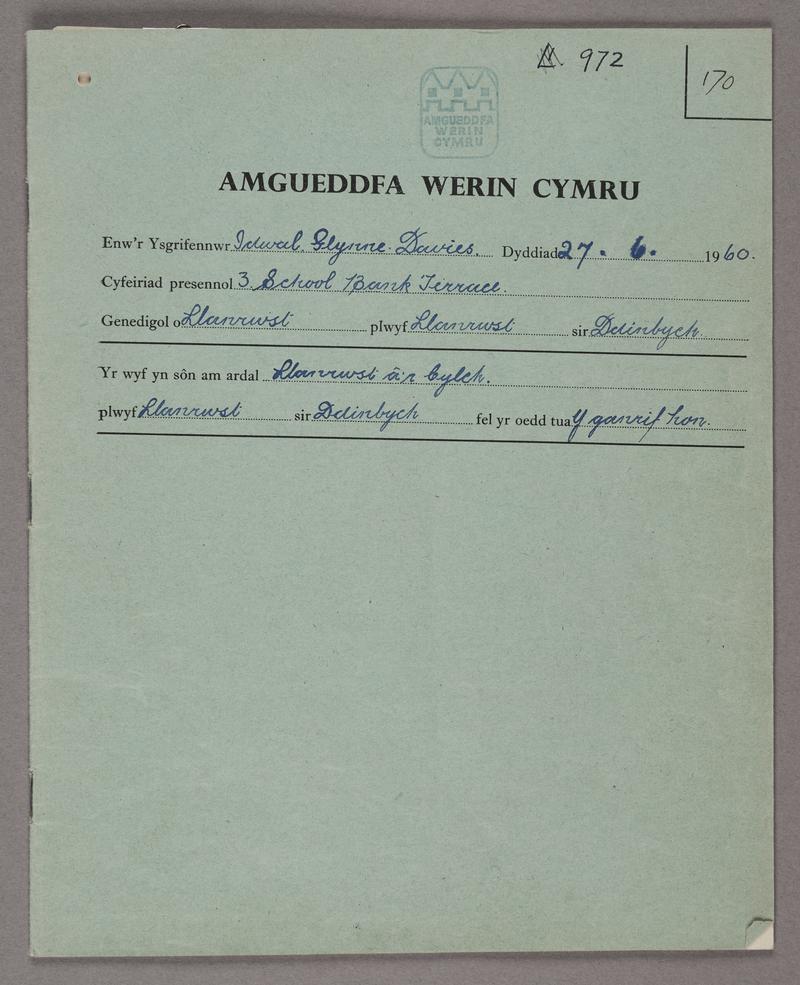 972
170
AMGUEDDFA
WERIN
CYMRU
AMGUEDDFA WERIN CYMRU
Enw'r Ysgrifennwr Idwal Glynne Davies. Dyddiad 27. 6. 1960.
Cyfeiriad presennol 3 School Bank Terrace.
Genedigol o Llanrwst plwyf Llanrwst sir Ddinbych.
Yr wyf yn sôn am ardal Llanrwst a'r Cylch.
plwyf Llanrwst sir Ddinbych fel yr oedd tua Y ganrif hon.